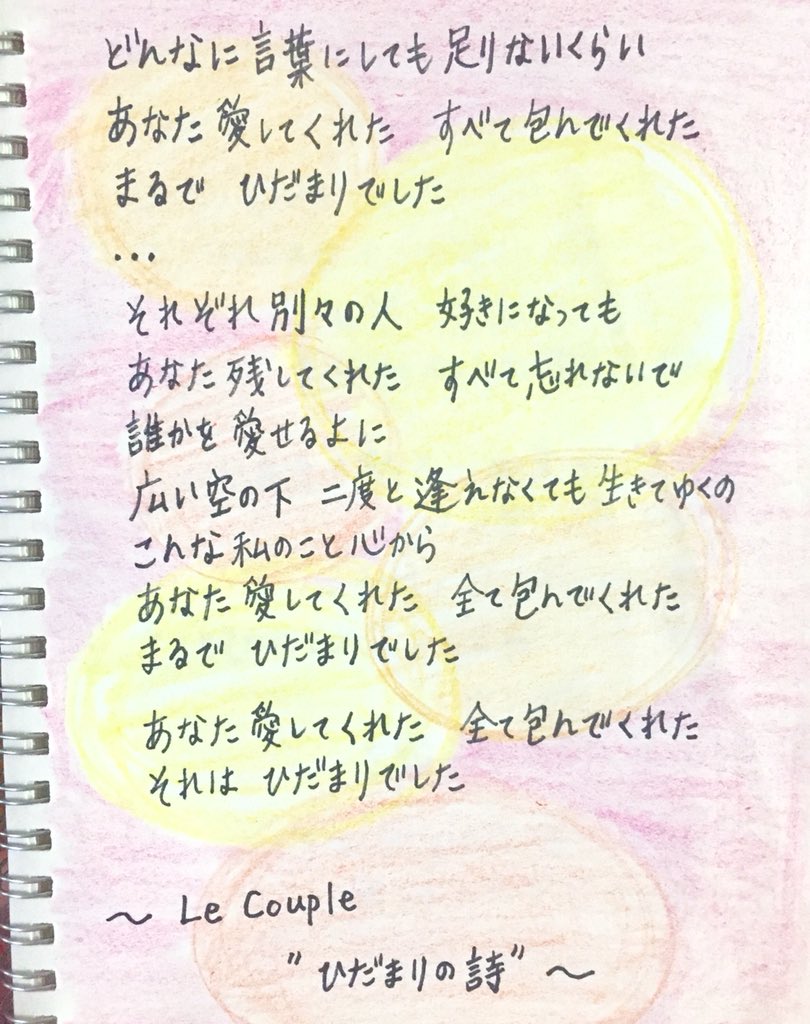 どんなに言葉にしても足りないくらい
あなた愛してくれた　すべて包んでくれた
まるで　ひだまりでした
...
それぞれ別々の人　好きになっても
あなた残してくれた　すべて忘れないで
誰かを愛せるよに
広い空の下　二度と逢えなくても生きてゆくの
こんな私のこと心から
あなた愛してくれた　全て包んでくれた
まるで　ひだまりでした
あなた愛してくれた　全て包んでくれた
それは　ひだまりでした
～ Le Couple
"ひだまりの詩" ～